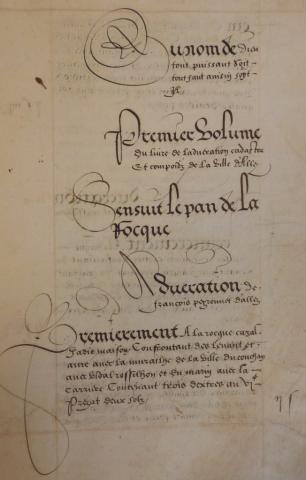 Au nom de Dieu
tout puissant soit
tout faut ainsin soyt
Premier Volume
du livre de laduération cadastre
Et compoidz de la ville dAlle
Sensuit le pan de la
Rocque
Aduération de
françois peyronnet dallez
Premierement A la rocque cazal
Jadie maison Confrontant des levant et
aure avec la muralhe de la ville du couchan
avec vidal rossilhon et du marin avec la
carriere Contenant trois dextres au
Prezat deux solz